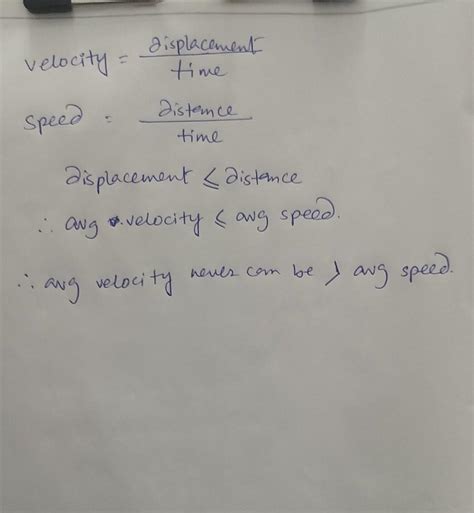 velocity = displacement / time
speed = distance / time
displacement ⩽ distance
∴ avg velocity ⩽ avg speed.
∴ avg velocity never can be > avg speed.